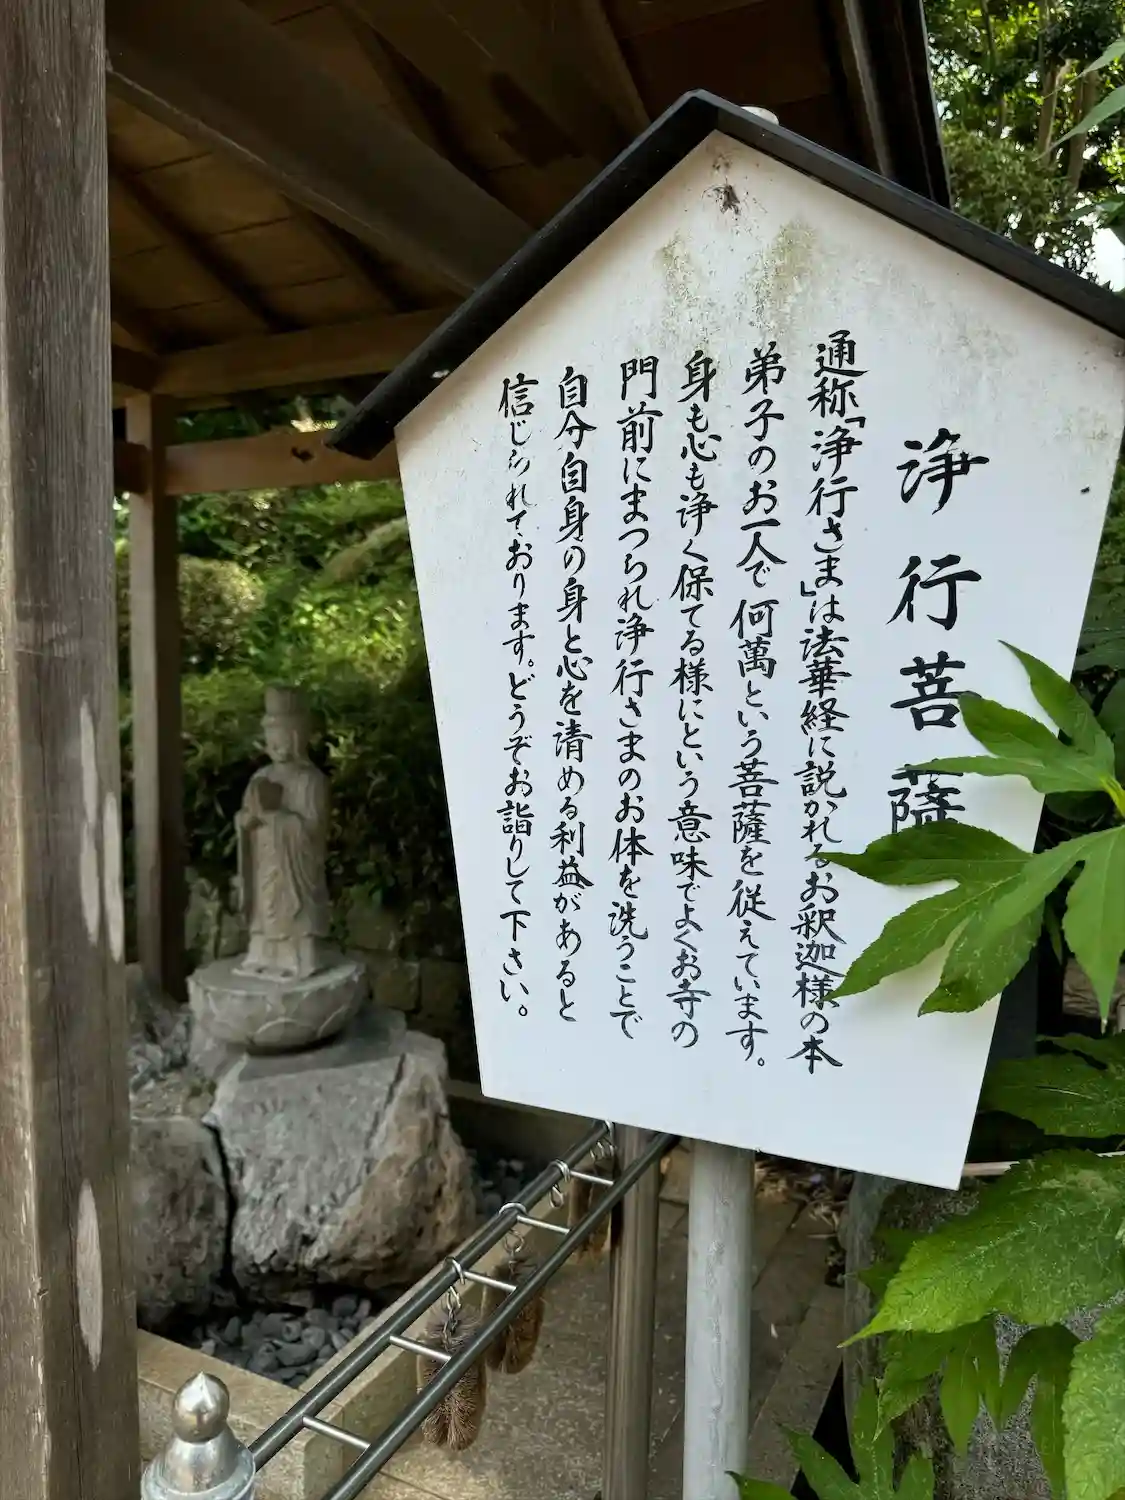 浄行菩薩
通称「浄行さま」は法華経に説かれるお釈迦様の本
弟子のお一人で何萬という菩薩を従えています。
身も心も浄く保てる様にという意味でよくお寺の
門前にまつられ浄行さまのお体を洗うことで
自分自身の身と心を清める利益があると
信じられております。どうぞお詣りして下さい。